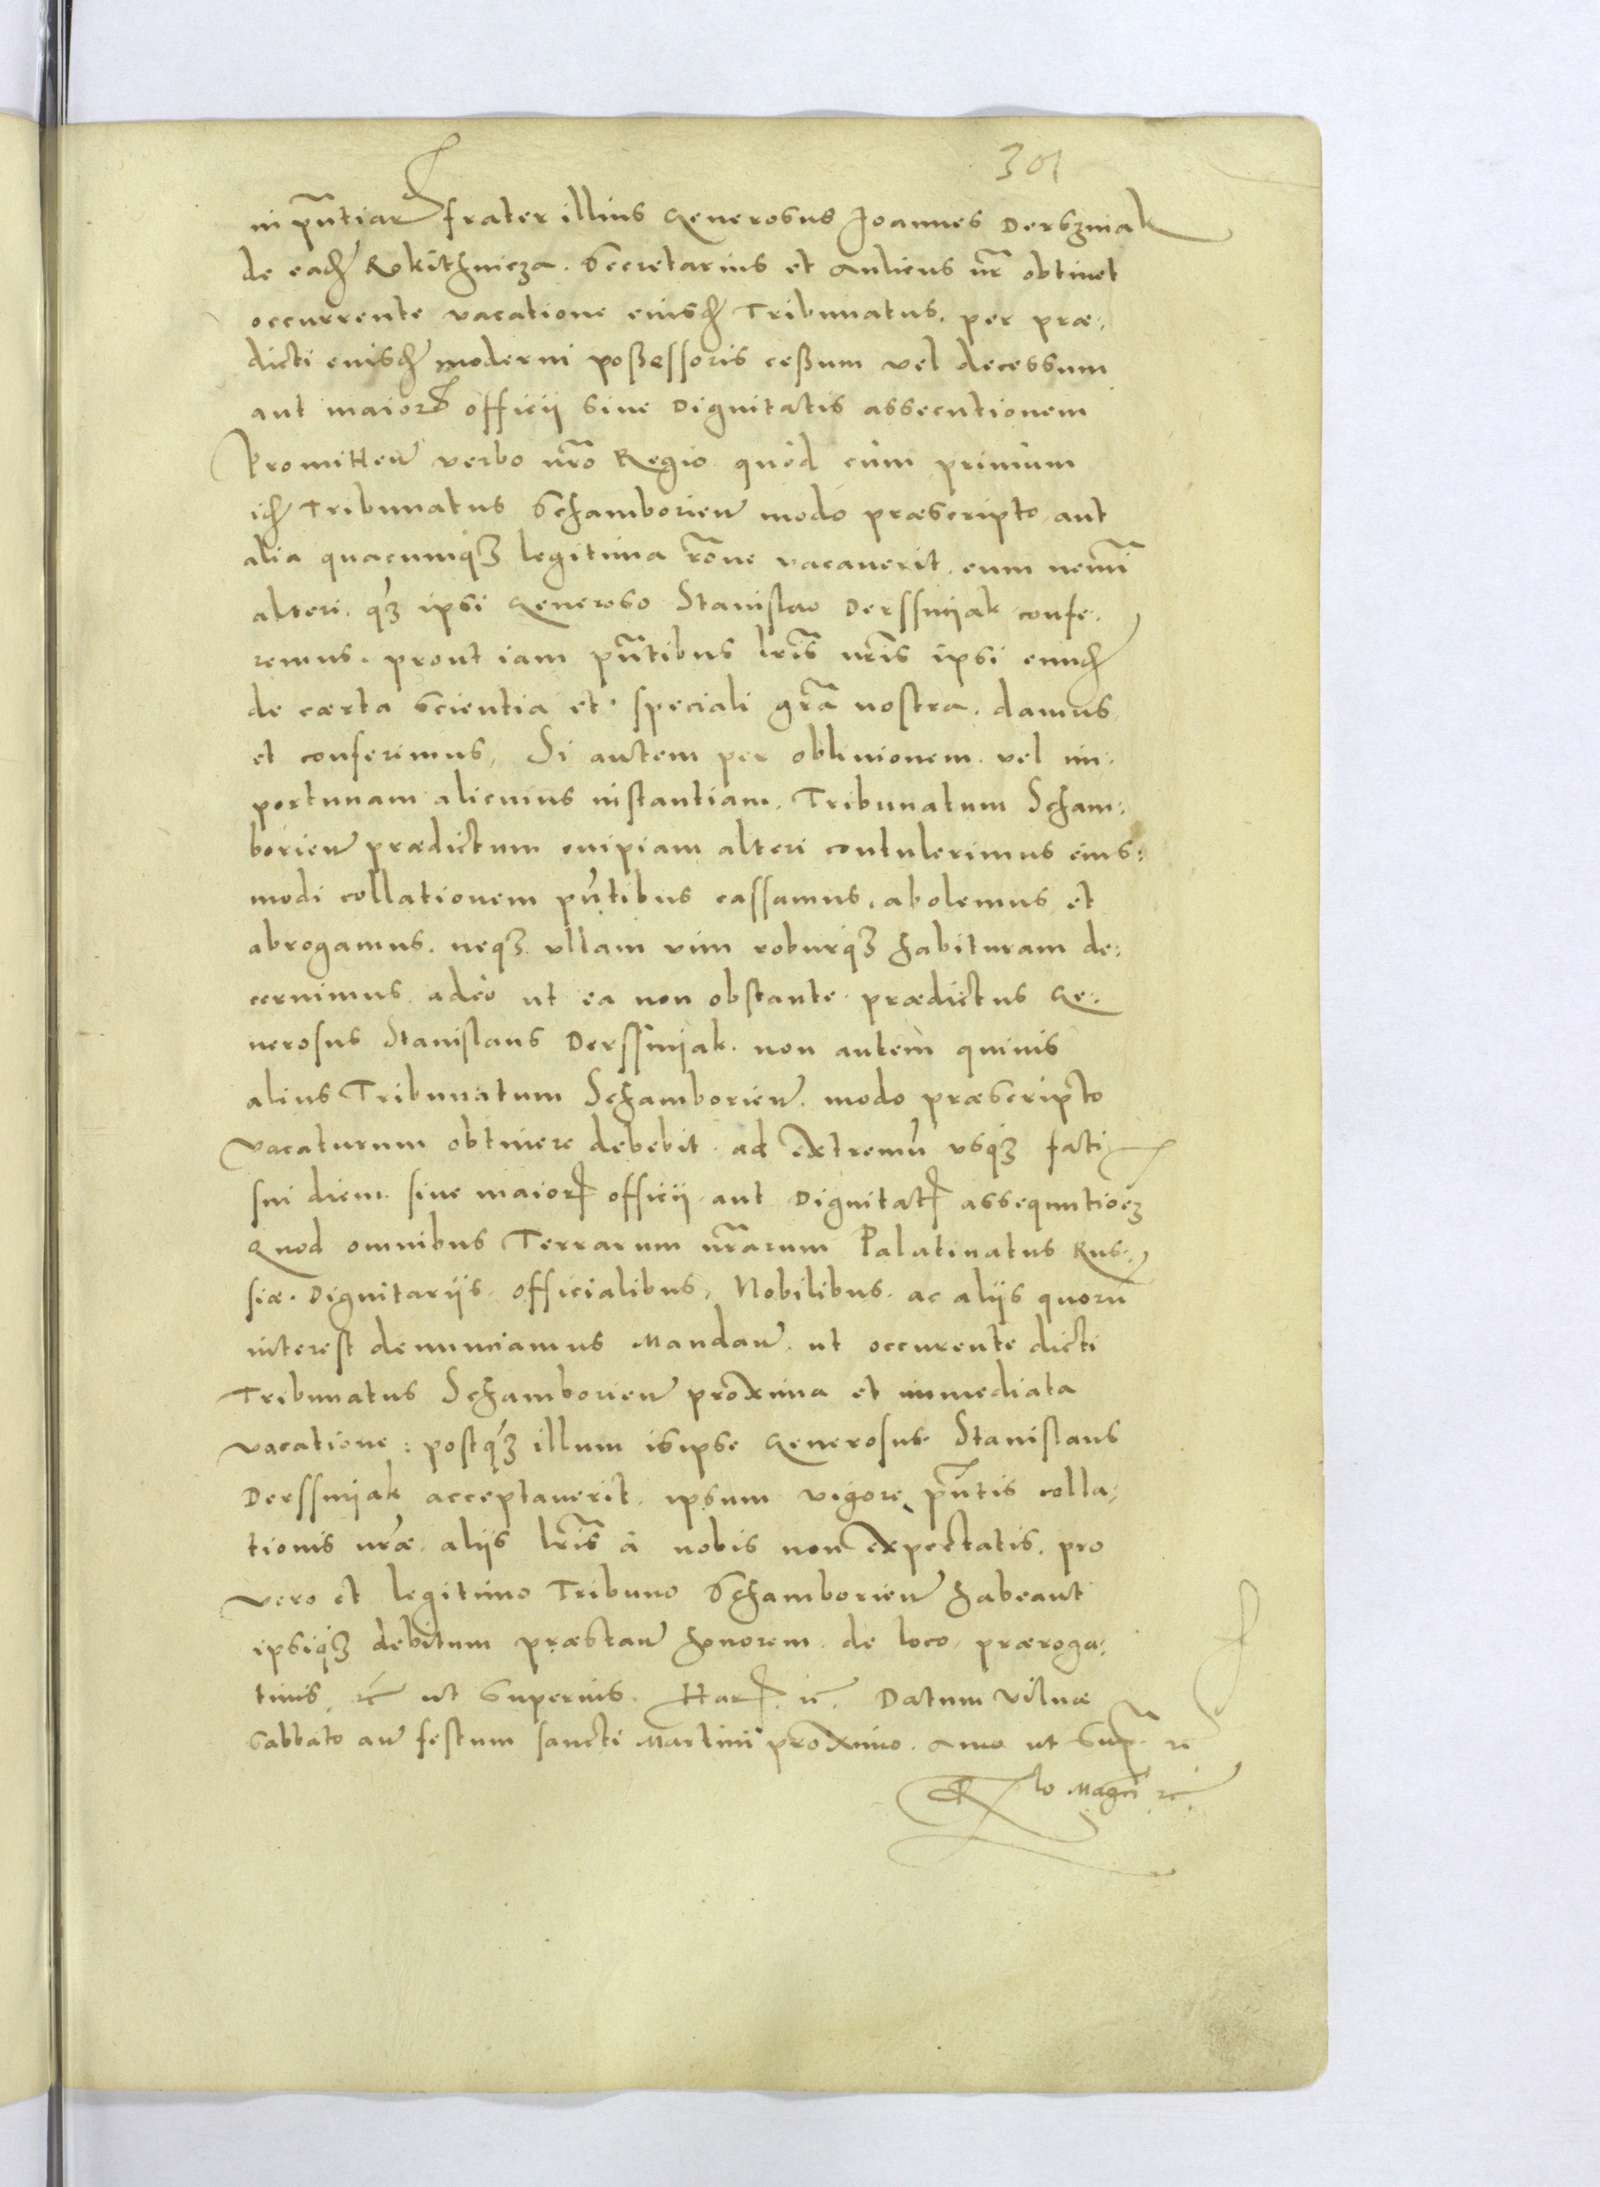 301
in pñtiar frater illius Generosus Joannes Derszniak
de eadē Rokithnicza. Secretarius et Aulicus nr̃ obtinet
occurrente vacatione eiusdē Tribunatus, per præ:
dicti eiusdē moderni poßessoris ceßum vel decessum
aut maioris officii sive Dignitatis assecutionem
Promitten verbo nr̃o Regio quòd cùm primùm
idē Tribunatus Schamborien modo præscripto aut
alia quacumq3 legitima rõne vacaverit. eum nemĩ
alteri. q̃3 ipsi Generoso Stanislao Derssnijak confe:
remus. prout iam pñtibus lrĩs nrĩs ipsi eundē
de cærta scientia et speciali gr̃a nostra. damus
et conferimus, Si autem per oblivionem. vel im:
portunam alicuius instantiam. Tribunatum Scham:
borien prædictum cuipiam alteri contulerimus eius:
modi collationem pñtibus cassamus, abolemus et
abrogamus. neq3 ullam vim roburq3 habituram de:
cernimus adeò ut ea non obstante prædictus Ge:
nerosus Stanislaus Derssnijak. non autem quivis
alius Tribunatum Schamborien. modo præscripto
vacaturum obtinere debebit. ad extremũ usq3 fati
sui diem sive maioris officii aut Dignitatis assequutioẽ3
Quod omnibus Terrarum nr̃arum Palatinatus Rus:
siæ. Dignitariis. officialibus, Nobilibus. ac aliis quorũ
interest denunciamus Mandan. ut occurente dicti
Tribunatus Schamborien proxima et immediata
vacatione: postq̃3 illum isipse Generosus Stanislaus
Derssnijak acceptaverit. ipsum vigore pñtis colla:
tionis nr̃æ. aliis lrĩs à nobis non expectatis. pro
vero et legitimo Tribuno Schamborien habeant
ipsiq3 debitum præstan honorem. de loco, præroga:
tivis, etc ut superius. Har. etc. Datum Vilnæ
Sabbato an festum sancti Martini proximo. Anno ut supr̃ etc
Rlo Magci etc